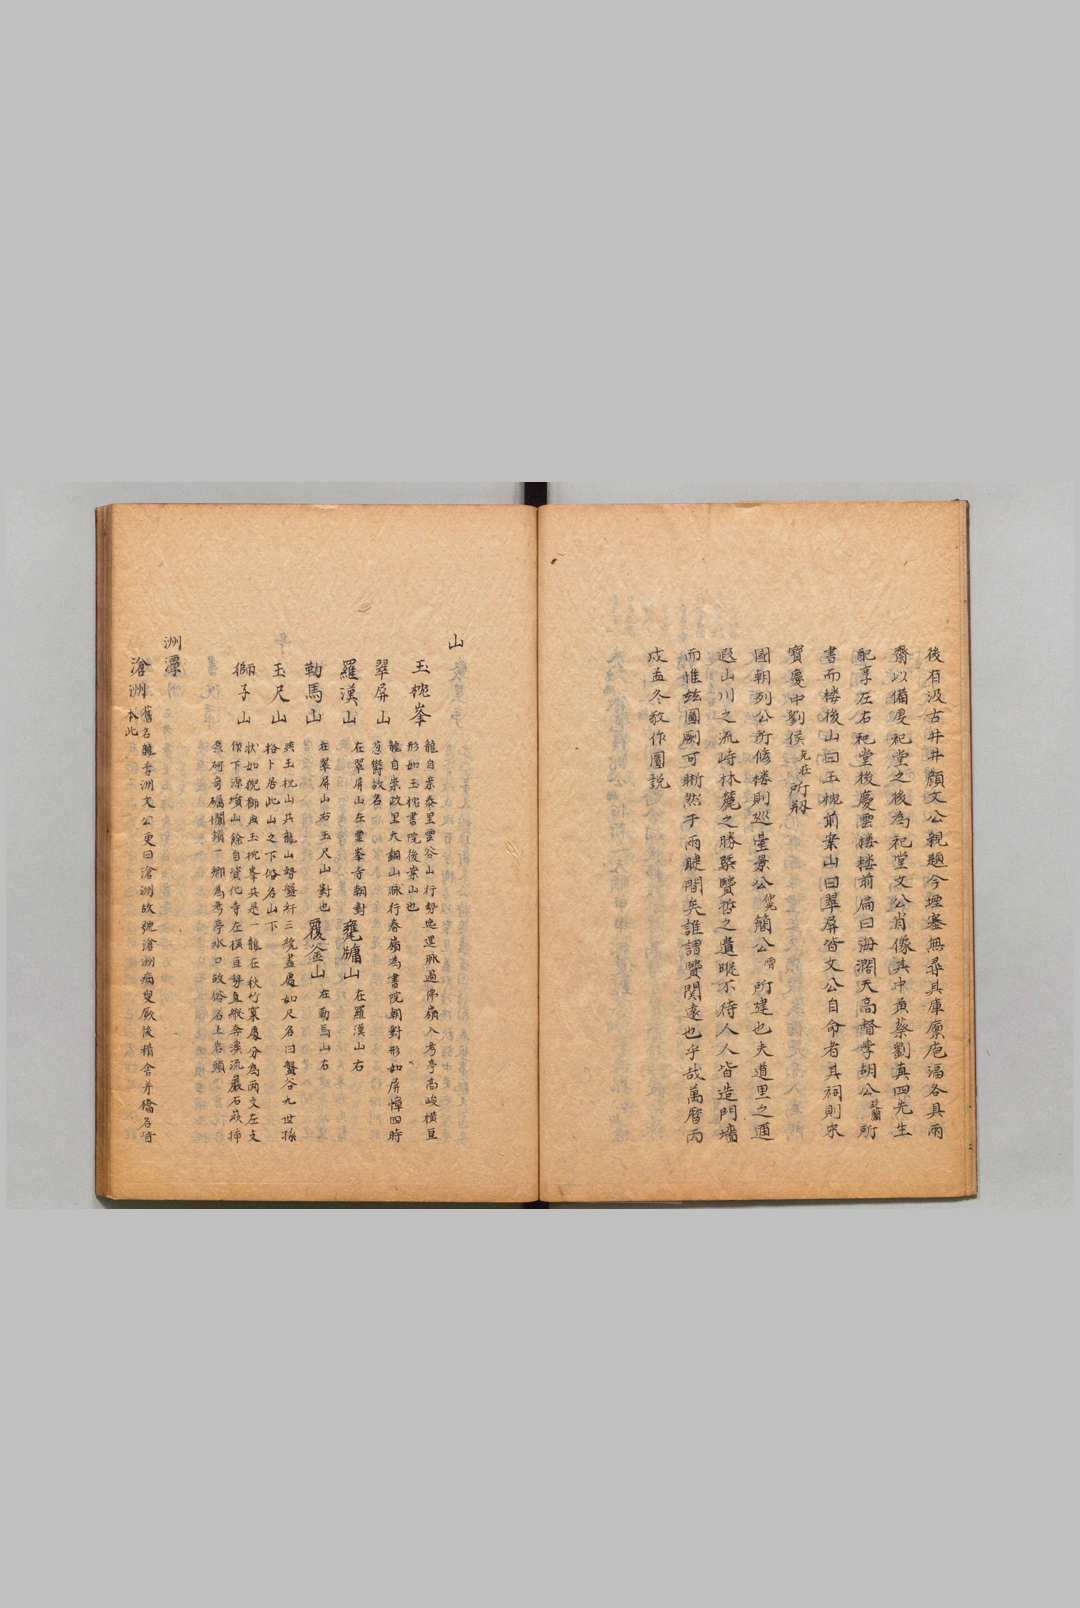 後有汲古井井顏文公親題今堙塞無尋其庫廩庖湢各具兩
齋以備優祀堂之後為祀堂文公肖像其中黃蔡劉真四先生
配享左右祀堂後慶雲樓樓前扁曰海濶天高督學胡公所
書而樓後山曰玉枕前案山曰翠屏皆文公自命者其祠則宋
寶慶中劉侯克莊所刱
國朝列公所脩樓則巡臺景公簡公霄所建也夫道里之逥
遐山川之流峙林麓之勝槩賢哲之遺蹤不待人人皆造門墻
而惟玆圖劂可晰然于兩睫間矣誰謂賢関遠也乎哉萬曆丙
戌孟冬敬作圖説
山
玉枕峯 龍自崇泰里雲谷山行勢逶迤脈過佛嶺入考亭高峻橫亘
形如玉枕書院後案山也
翠屏山 龍自崇政里大銅山脈行春嶺為書院朝對形如屏幛四時
蒼欝故名
羅漢山 在翠屏山左靈峯寺朝對 甕牖山 在羅漢山右
勒馬山 在翠屏山右玉尺山對也 覆釜山 在勒馬山右
玉尺山 與玉枕山共龍山勢盤紆三統盡處如尺名曰蟹谷九世孫
格卜居此山之下俗名山下
獅子山 狀如猊獅與玉枕峯共是一龍在秋竹裏處分為兩支左支
傑下漂墳山餘自賓化寺左橫亘勢直縱奔溪流巖石嵌挿
磊砢奇礧攔鎖一鄉為考亭水口故俗名上岩頭
洲潭
滄洲 舊名龍舌洲文公更曰滄洲故號滄洲病叟厥後精舍并橋名旹
本此